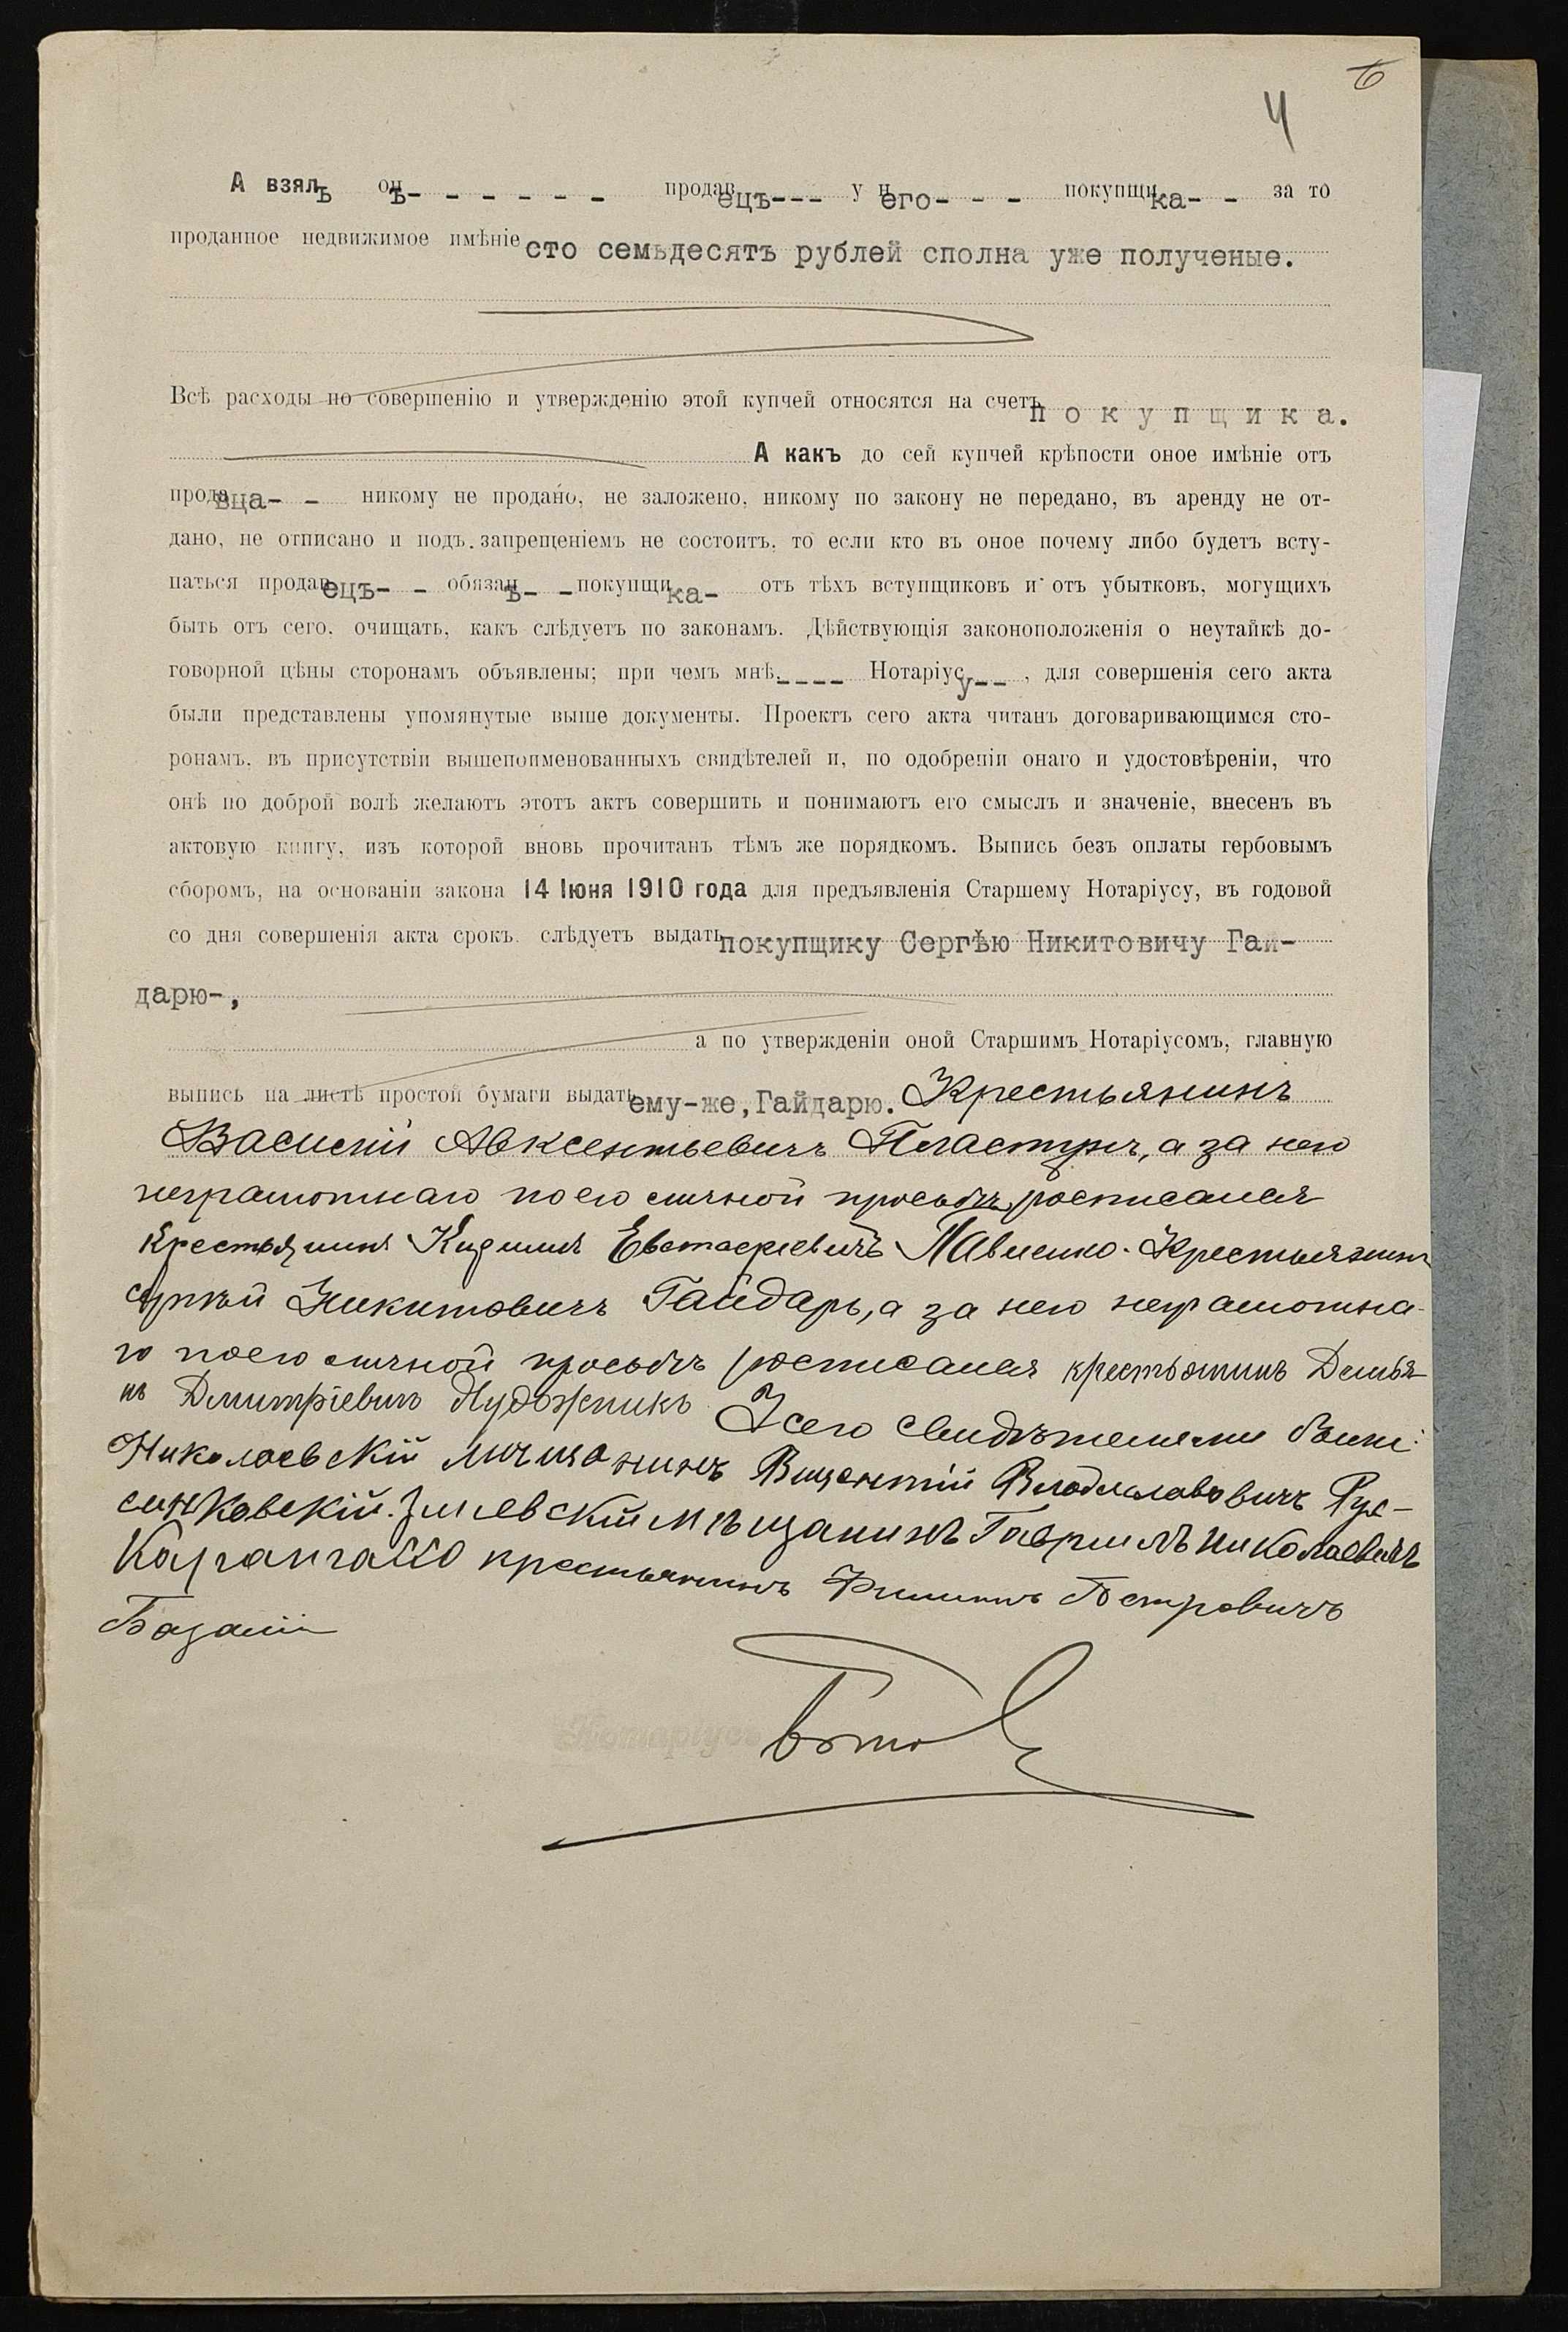 6
4
А взялъ онъ- - - - - - - продавецъ--- у него- - - покупщика- - за то
проданное недвижимое имѣніе сто семьдесятъ рублей сполна уже полученые.
Всѣ расходы по совершенію и утвержденію этой купчей относятся на счетъ покупщика.
А какъ до сей купчей крѣпости оное имѣніе отъ
продавца- - никому не продано, не заложено, никому по закону не передано, въ аренду не от-
дано, не отписано и подъ запрещеніемъ не состоитъ, то если кто въ оное почему либо будетъ всту-
паться продавецъ- - обязанъ- -покупщика- отъ тѣхъ вступщиковъ и отъ убытковъ, могущихъ
быть отъ сего, очищать, какъ слѣдуетъ по законамъ. Дѣйствующія законоположенія о неутайкѣ до-
говорной цѣны сторонамъ объявлены; при чемъ мнѣ,---- Нотаріусу-- , для совершенія сего акта
были представлены упомянутые выше документы. Проектъ сего акта читанъ договаривающимся сто-
ронамъ, въ присутствіи вышепоименованныхъ свидѣтелей и, по одобреніи онаго и удостовѣреніи, что
онѣ по доброй волѣ желаютъ этотъ актъ совершить и понимаютъ его смыслъ и значеніе, внесенъ въ
актовую книгу, изъ которой вновь прочитанъ тѣмъ же порядкомъ. Выпись безъ оплаты гербовымъ
сборомъ, на основаніи закона 14 Іюня 1910 года для предъявленія Старшему Нотаріусу, въ годовой
со дня совершенія акта срокъ слѣдуетъ выдать покупщику Сергѣю Никитовичу Гай-
дарю-,
а по утвержденіи оной Старшимъ Нотаріусомъ, главную
выпись на листѣ простой бумаги выдать ему-же, Гайдарю. Крестьянинъ
Василій Авксентьевичъ Пластунъ, а за него
неграмотнаго по его личной просьбѣ, росписался
Крестьянинъ Евстафіевичъ Павленко. Крестьянинъ
Сергѣй Никитовичъ Гайдарь, а за него неграмотна-
го по его личной просьбѣ росписался крестьянинъ Демья-
нъ Дмитріевичъ Художникъ У сего свидѣтелями были:
Николаевскій мѣщанинъ Викентій Владиславовичъ Рус-
Зміевскій мѣщанинъ Гавріилъ Николаевичъ
крестьянинъ Филиппъ Петровичъ
Базалій
Нотаріусъ